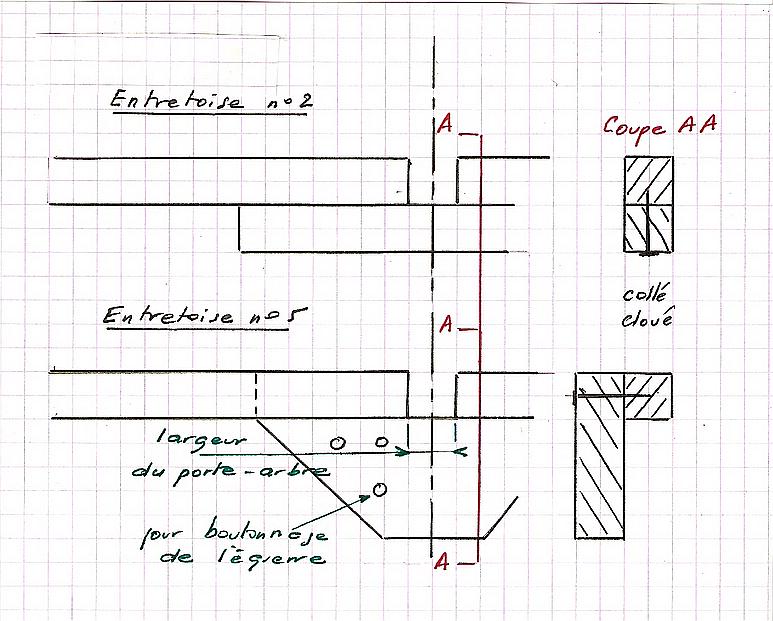 Entretoise n° 2
A
Coupe AA
collé
cloué
Entretoise n° 5
A
largeur
du porte-arbre
pour boutonnage
de l'équerre
A